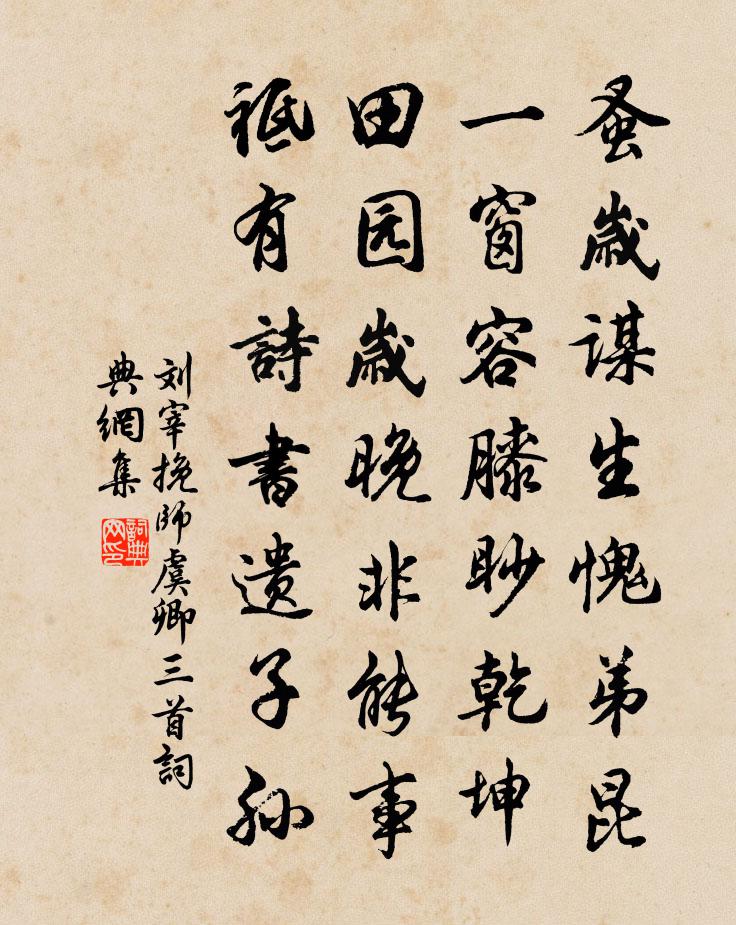 蚤歳謀生愧弟昆
一窗容膝眇乾坤
田园歳晚非能事
祗有詩書遗子孙
刘宰挽師虞卿三首詞
典網集
詞典网印